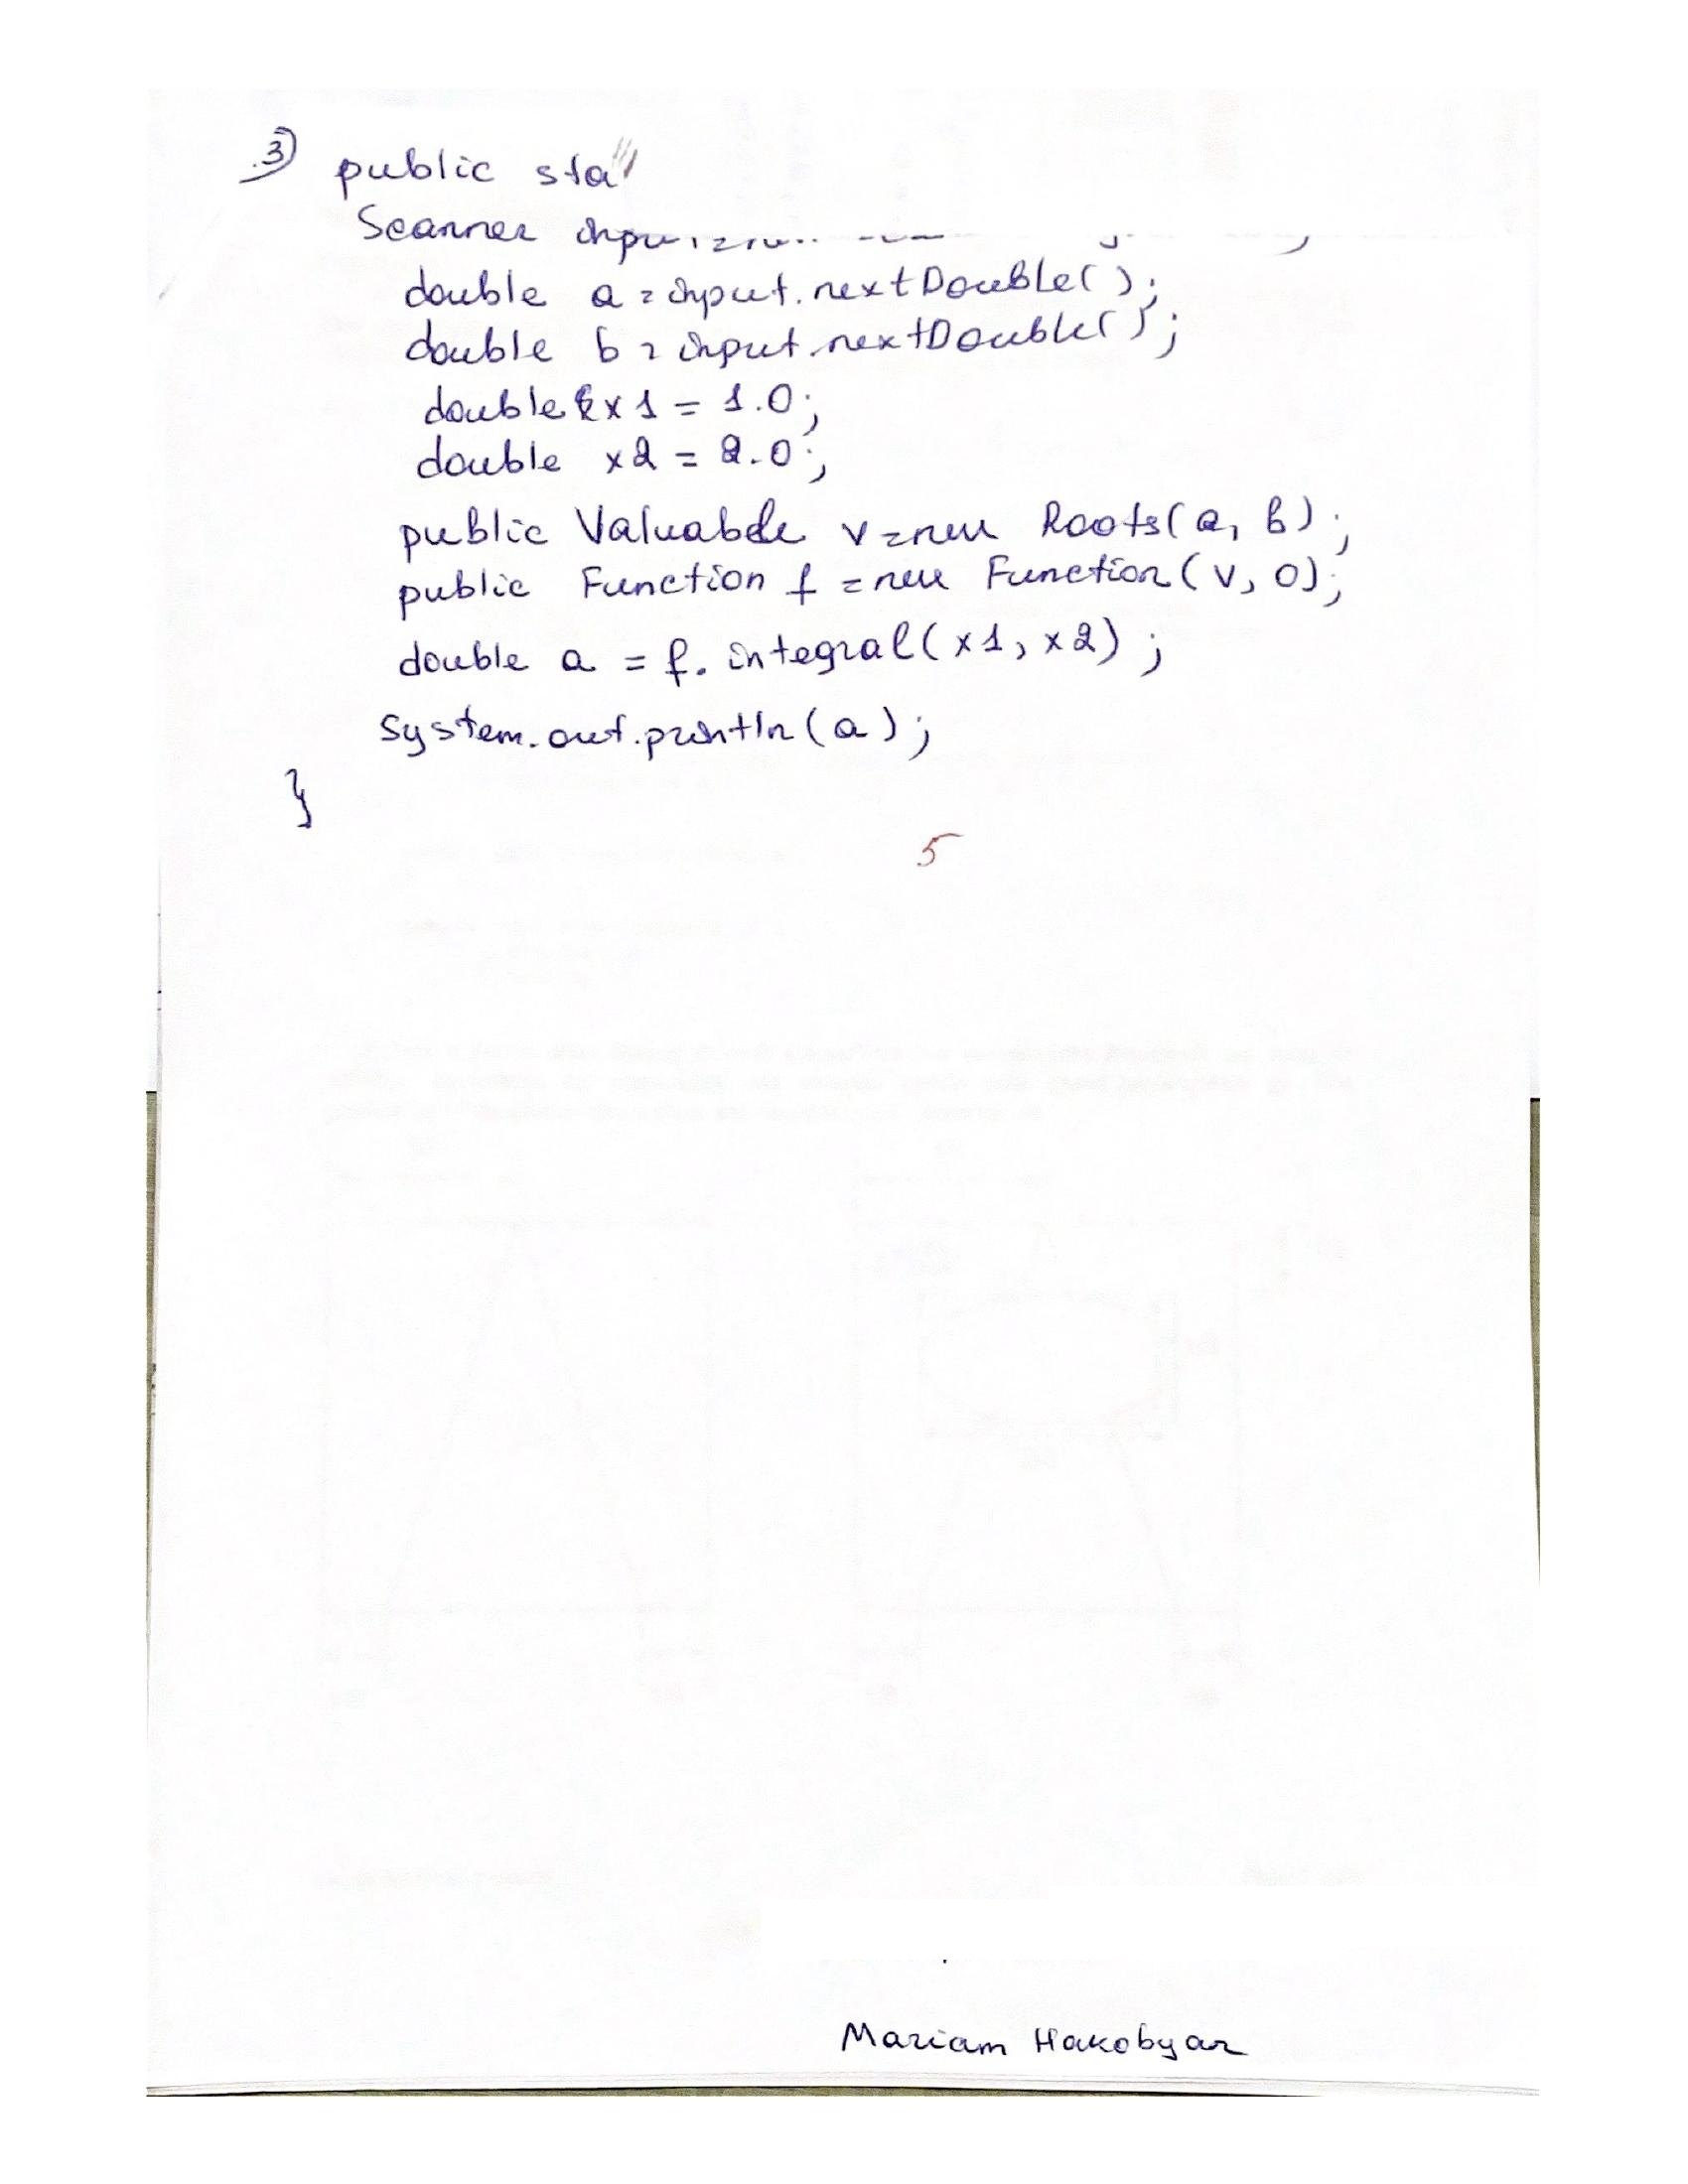 3) public sta
Scanner
double a = input.nextDouble();
double b = input.nextDouble();
double x1 = 1.0;
double x2 = 2.0;
public Valuable v = new Roots(a, b);
public Function f = new Function(v, 0);
double a = f.integral(x1, x2);
System.out.println(a);
}
5
Mariam Hakobyan